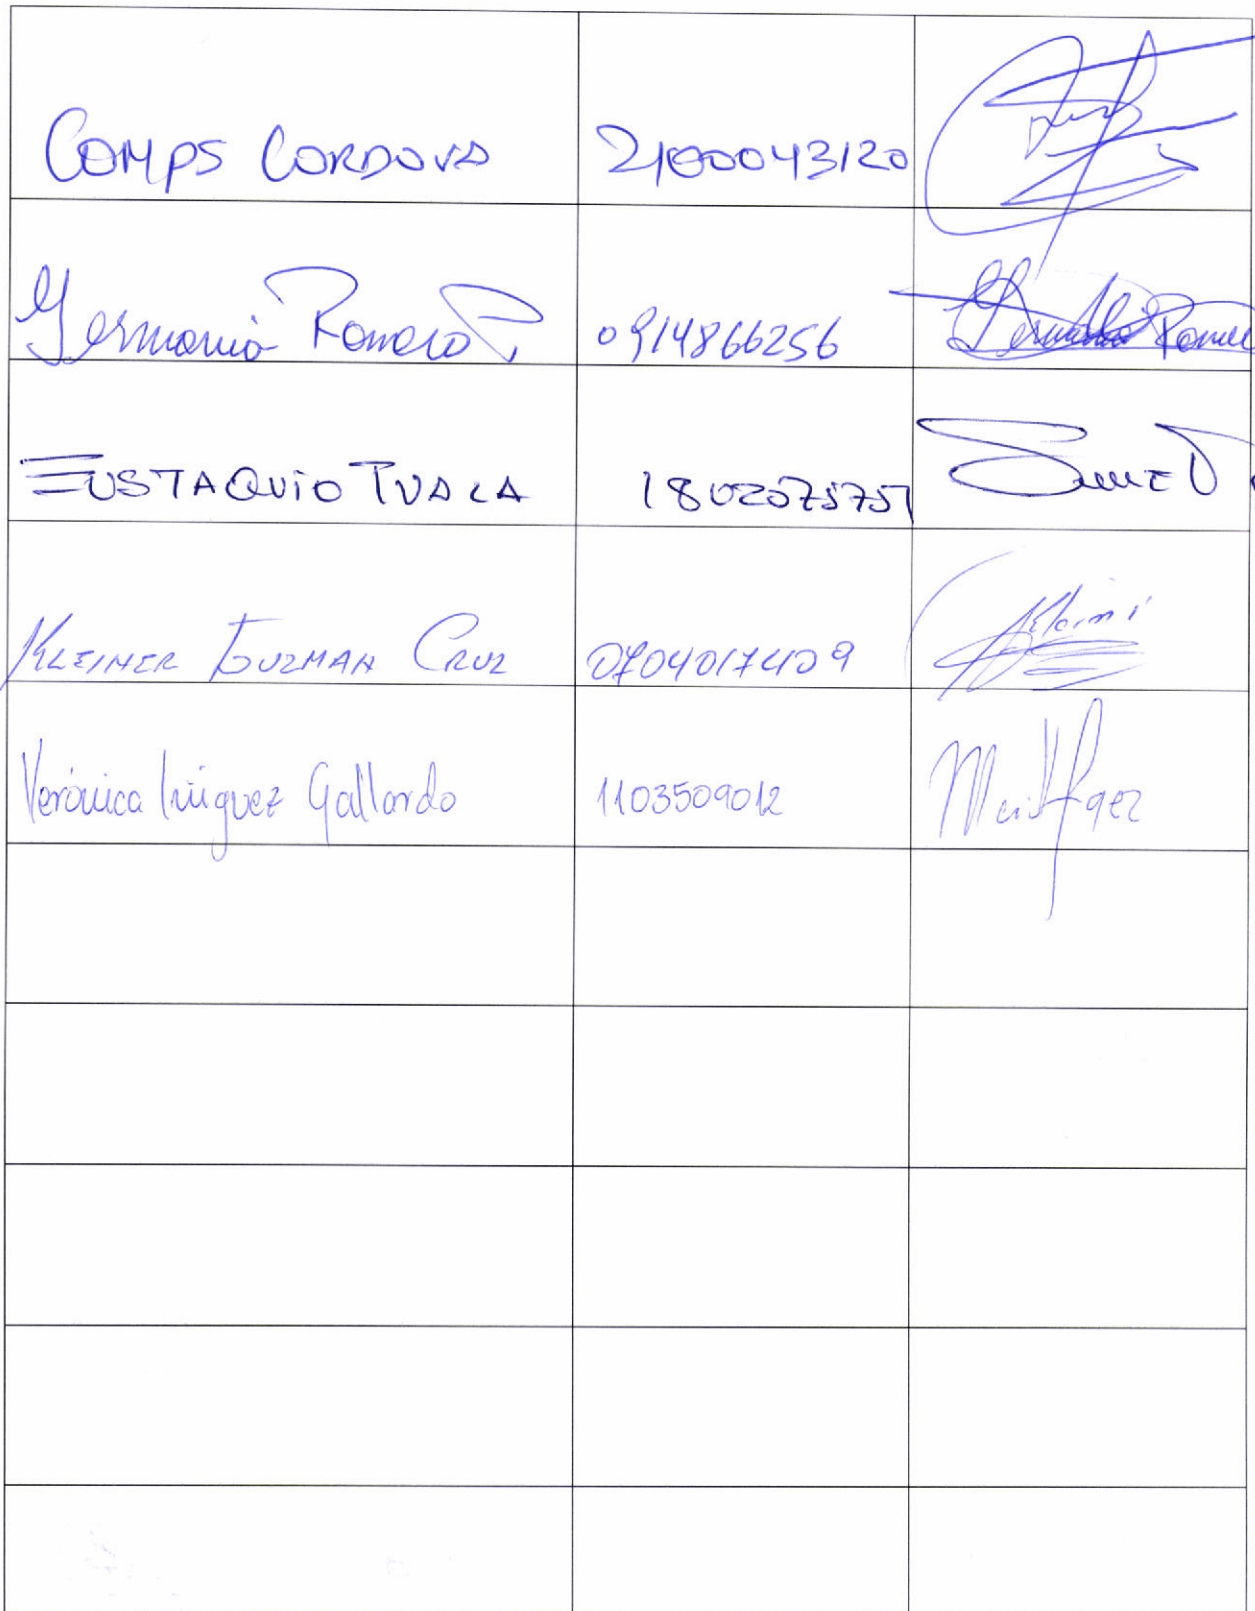 COMPS CORDOVA 2100043120
Germania Romero P. 0914866256 Germania Romer
EUSTAQUIO TUALA 1802575751
KLEINER GUZMAN CRUZ 0704017409
Verónica Iñiguez Gallardo 1103509012